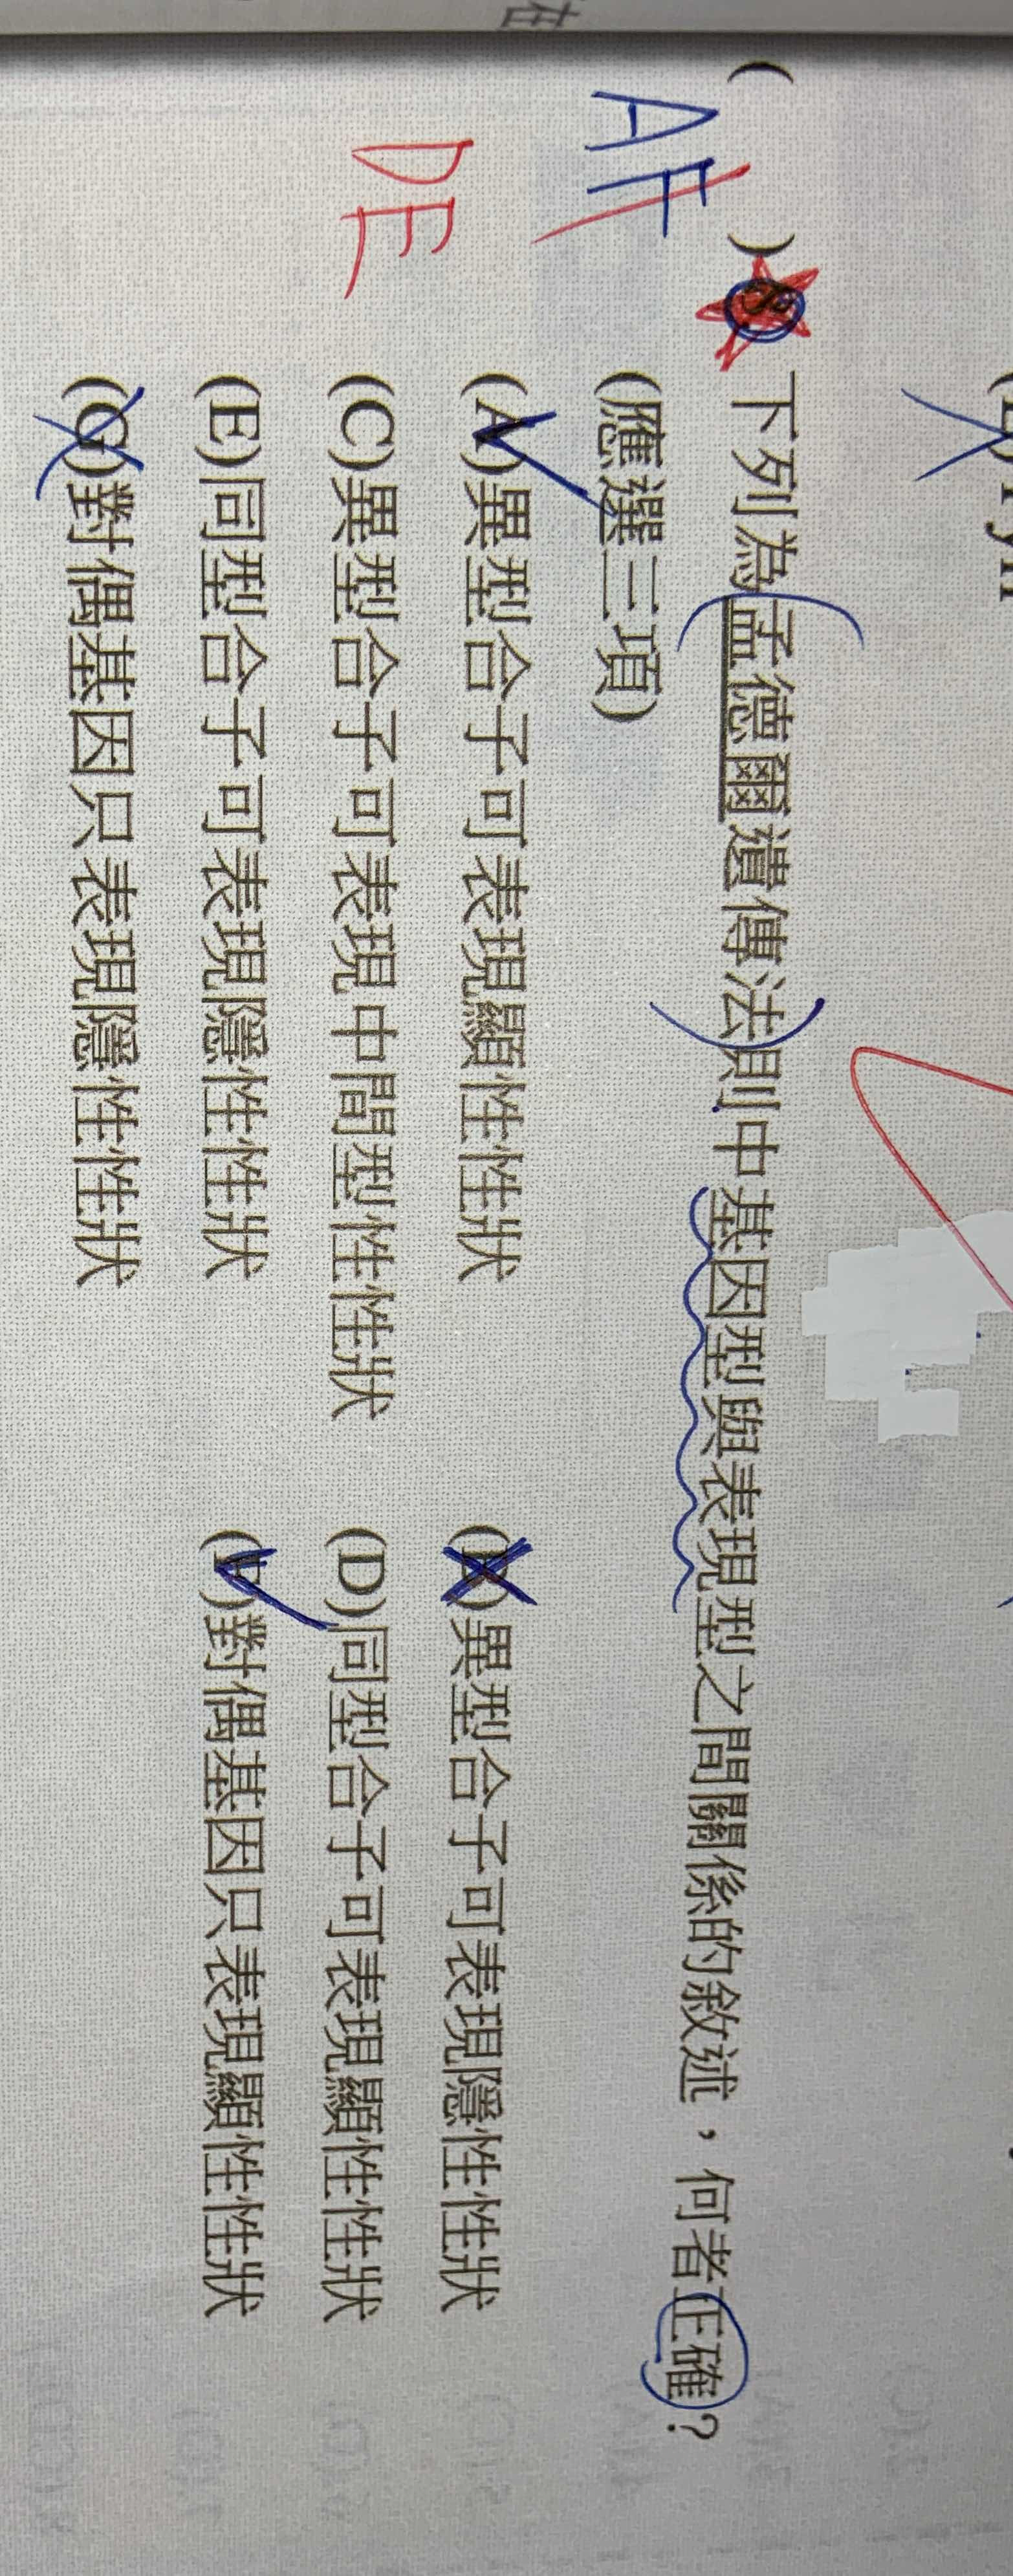 在
( AF ) 8 下列為孟德爾遺傳法則中基因型與表現型之間關係的敘述，何者正確？
DE
(應選三項)
(A)異型合子可表現顯性性狀 (B)異型合子可表現隱性性狀
(C)異型合子可表現中間型性性狀 (D)同型合子可表現顯性性狀
(E)同型合子可表現隱性性狀 (F)對偶基因只表現顯性性狀
(G)對偶基因只表現隱性性狀